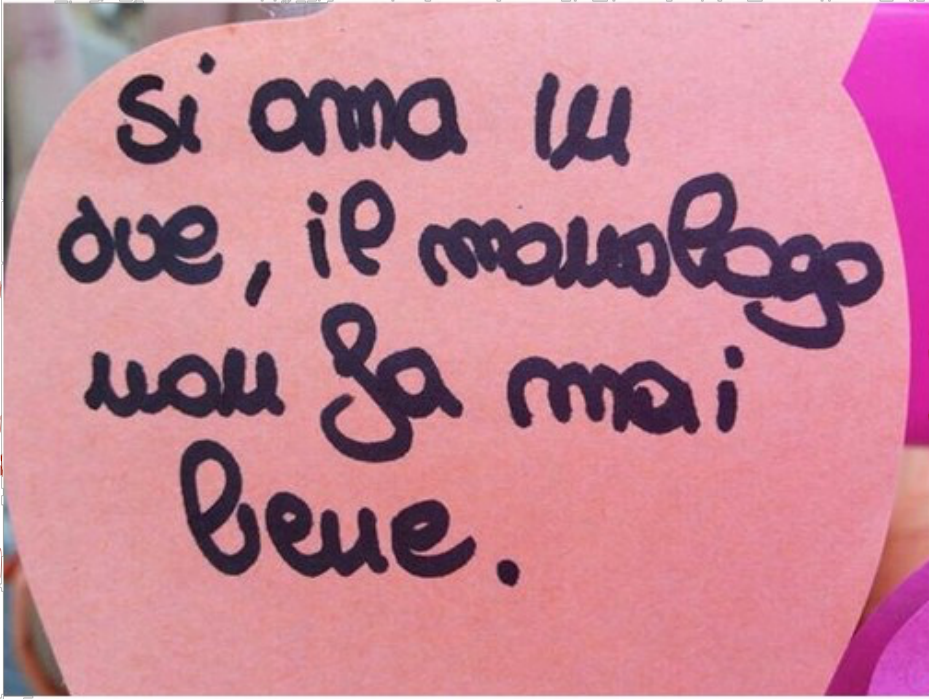 Si ama in
due, il monologo
non fa mai
bene.